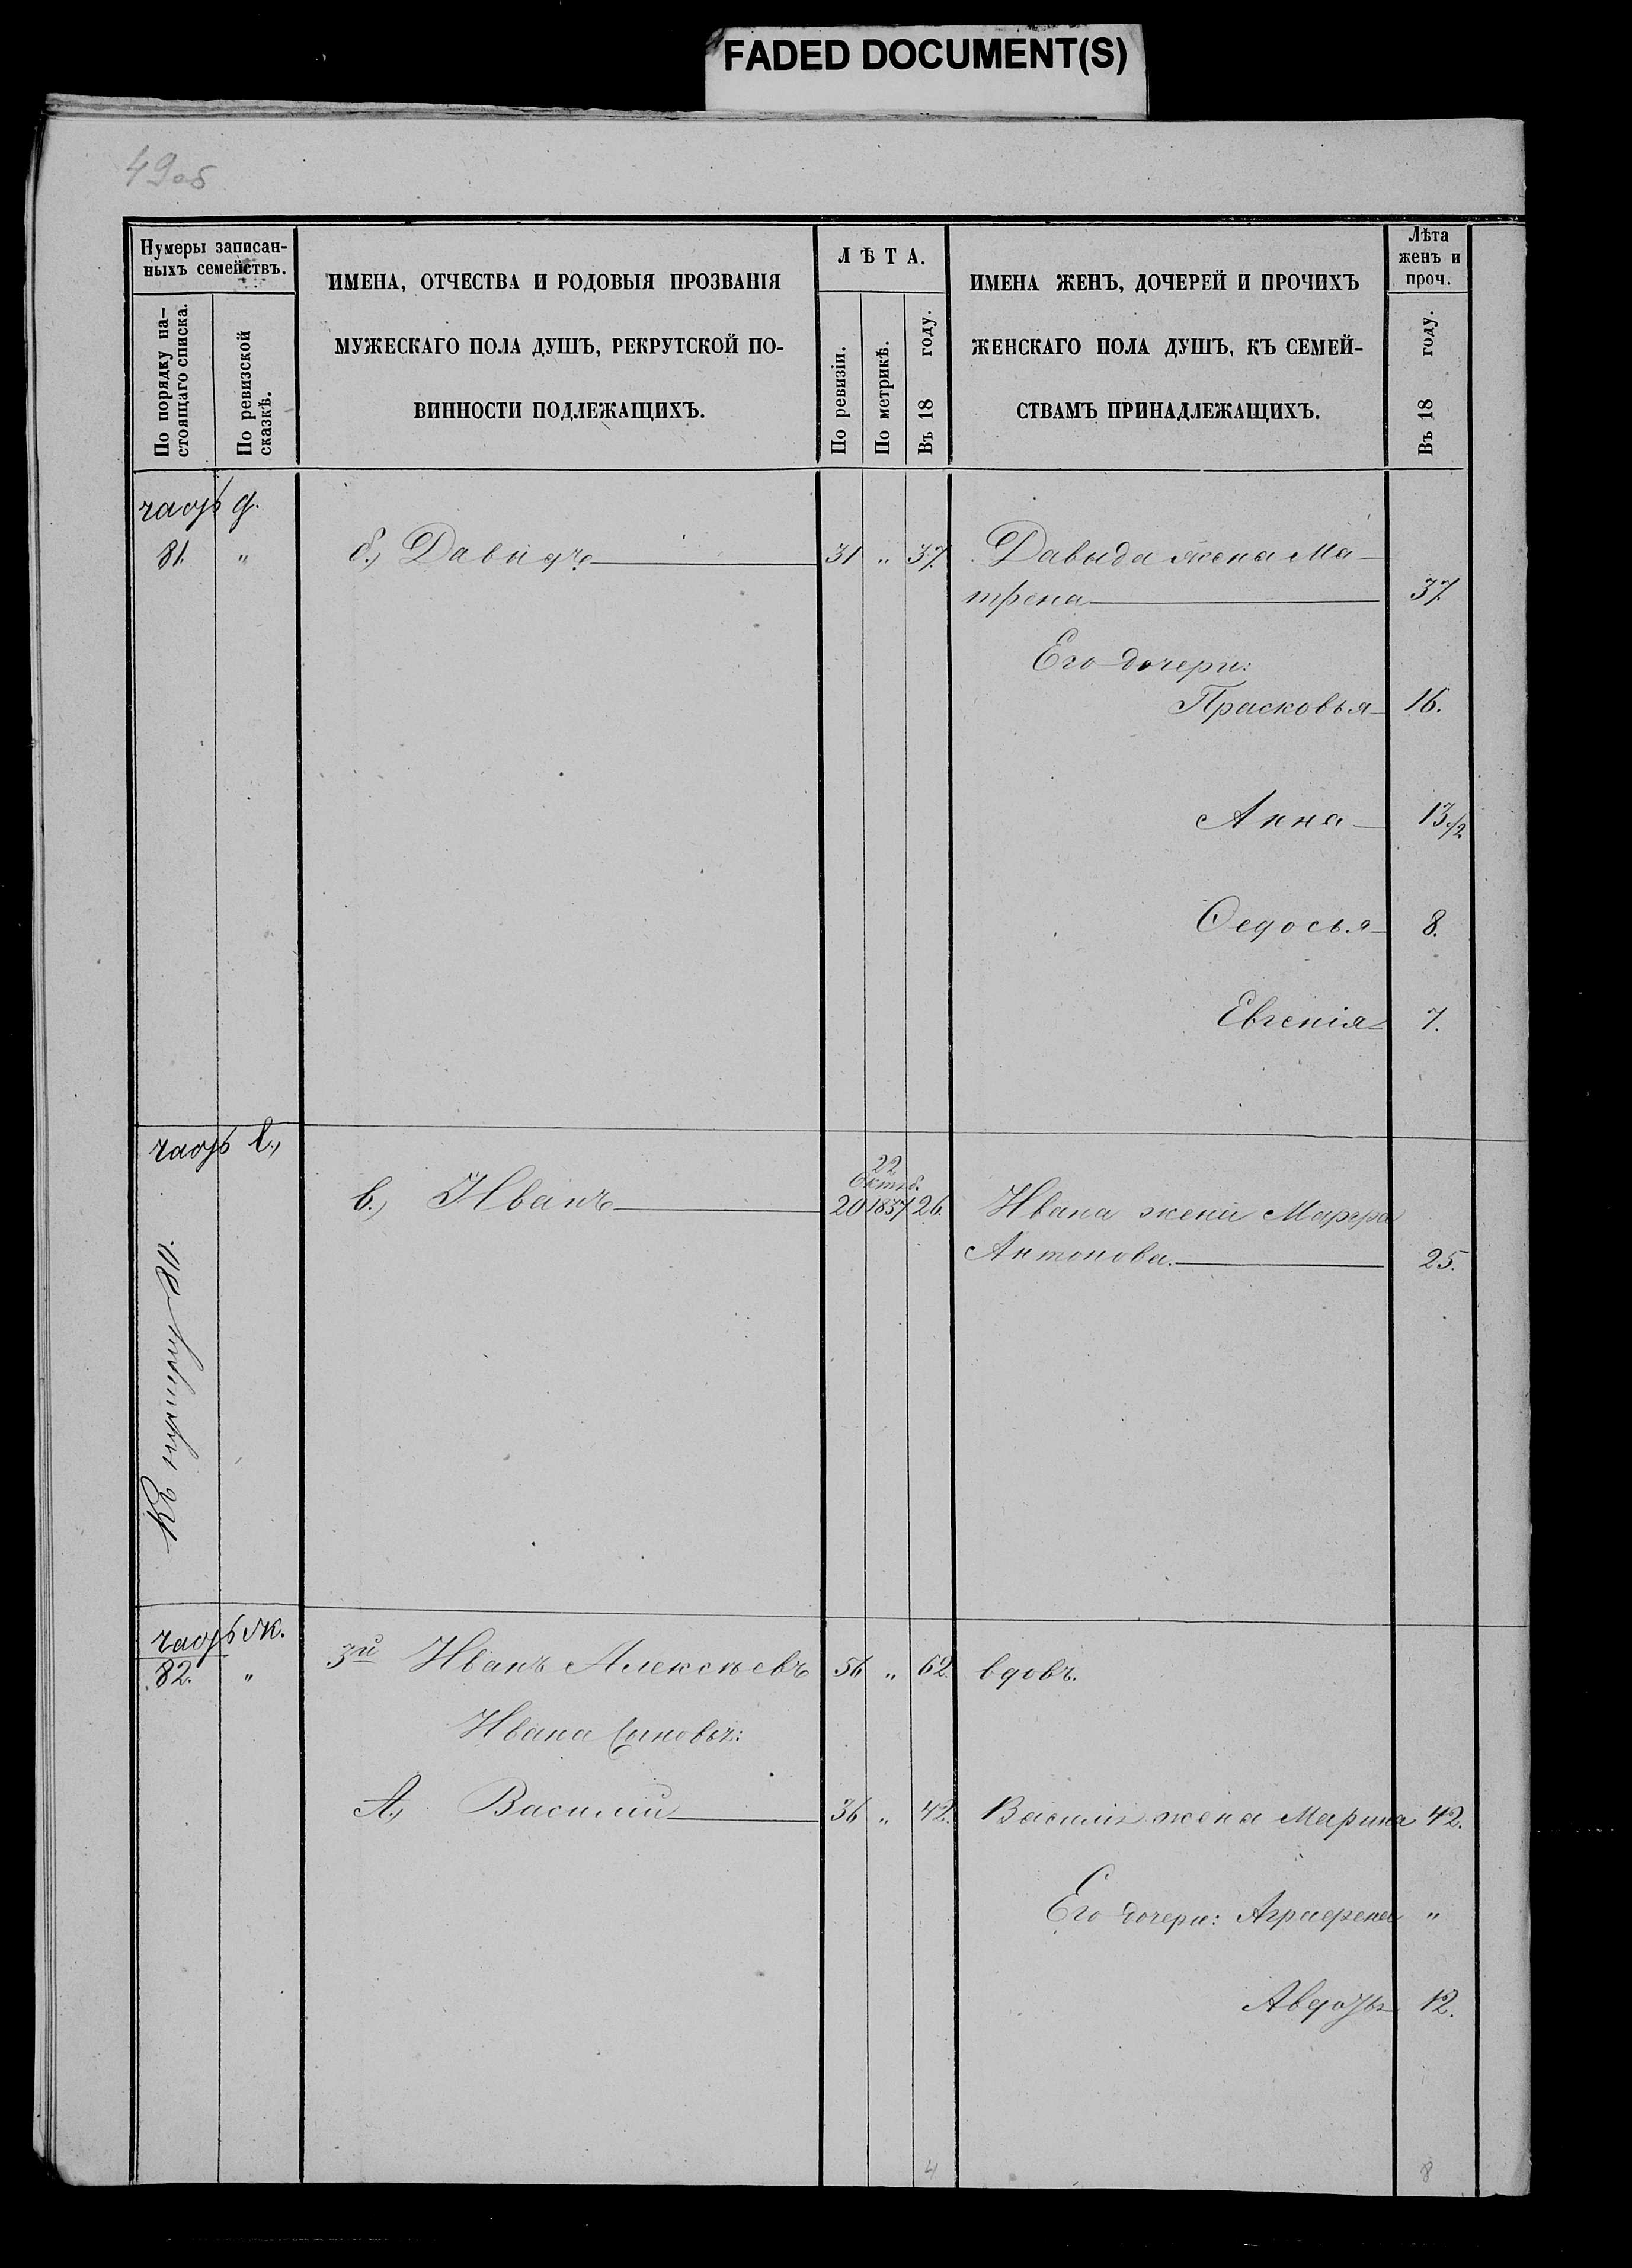 FADED DOCUMENT(S)
49об
Нумеры записан-
ныхъ семействъ.
По порядку на-
стоящаго списка.
По ревизской
сказкѣ.
ИМЕНА, ОТЧЕСТВА И РОДОВЫЯ ПРОЗВАНІЯ
МУЖЕСКАГО ПОЛА ДУШЪ, РЕКРУТСКОЙ ПО-
ВИННОСТИ ПОДЛЕЖАЩИХЪ.
ЛѢТА.
По ревизіи.
По метрикѣ.
Въ 18 году.
ИМЕНА ЖЕНЪ, ДОЧЕРЕЙ И ПРОЧИХЪ
ЖЕНСКАГО ПОЛА ДУШЪ, КЪ СЕМЕЙ-
СТВАМЪ ПРИНАДЛЕЖАЩИХЪ.
Лѣта
женъ и
проч.
Въ 18 году.
часть д.
81. " б., Давидъ 31 " 37. Давыда жена Ма-
трена 37.
Его дочери:
Прасковья 16.
Анна 13 1/2
Ѳедосья 8.
Евгенія 7.
часть е.,
22
Октяб.
в., Иванъ 20 1837 26. Ивана жена Марфа
Антонова. 25.
часть ж.
82. " 3й Иванъ Алексѣевъ 56 " 62. вдовъ.
Ивана Сыновья:
А., Василий 36 " 42. Василія жена Марина 42.
Его дочери: Аграфена "
Авдотья 12.
4 8